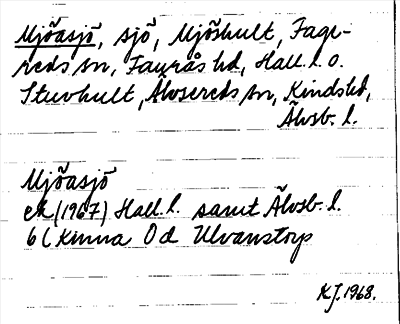 Mjöasjö, sjö, Mjöshult, Fage-
reds sn, Faurås hd, Hall. l. o.
Stuvhult, Älvsereds sn, Kinds hd,
Älvsb. l.
Mjöasjö
ek (1967) Hall. l. samt Älvsb. l.
6 C Kinna 0 d Ulvanstorp
K.J. 1968.